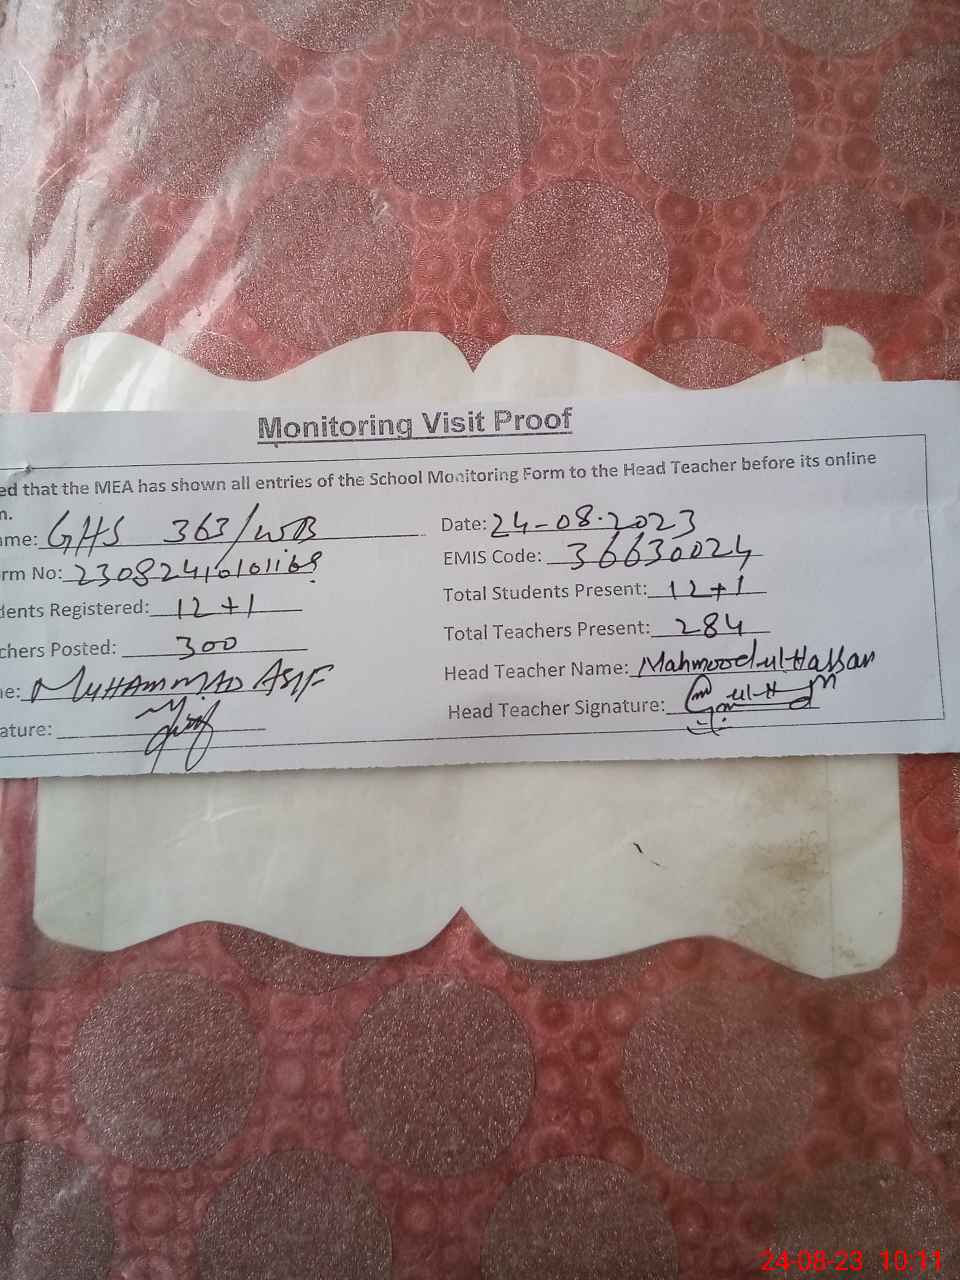 Monitoring Visit Proof
ed that the MEA has shown all entries of the School Monitoring Form to the Head Teacher before its online
n.
ame: GHS 363/WB Date: 24-08-2023
rm No: EMIS Code: 36630024
dents Registered: 12+1 Total Students Present: 12+1
chers Posted: 300 Total Teachers Present: 284
ne: MUHAMMAD ASIF Head Teacher Name: Mahmood-ul-Hassan
ature: Head Teacher Signature:
24-08-23 10:11